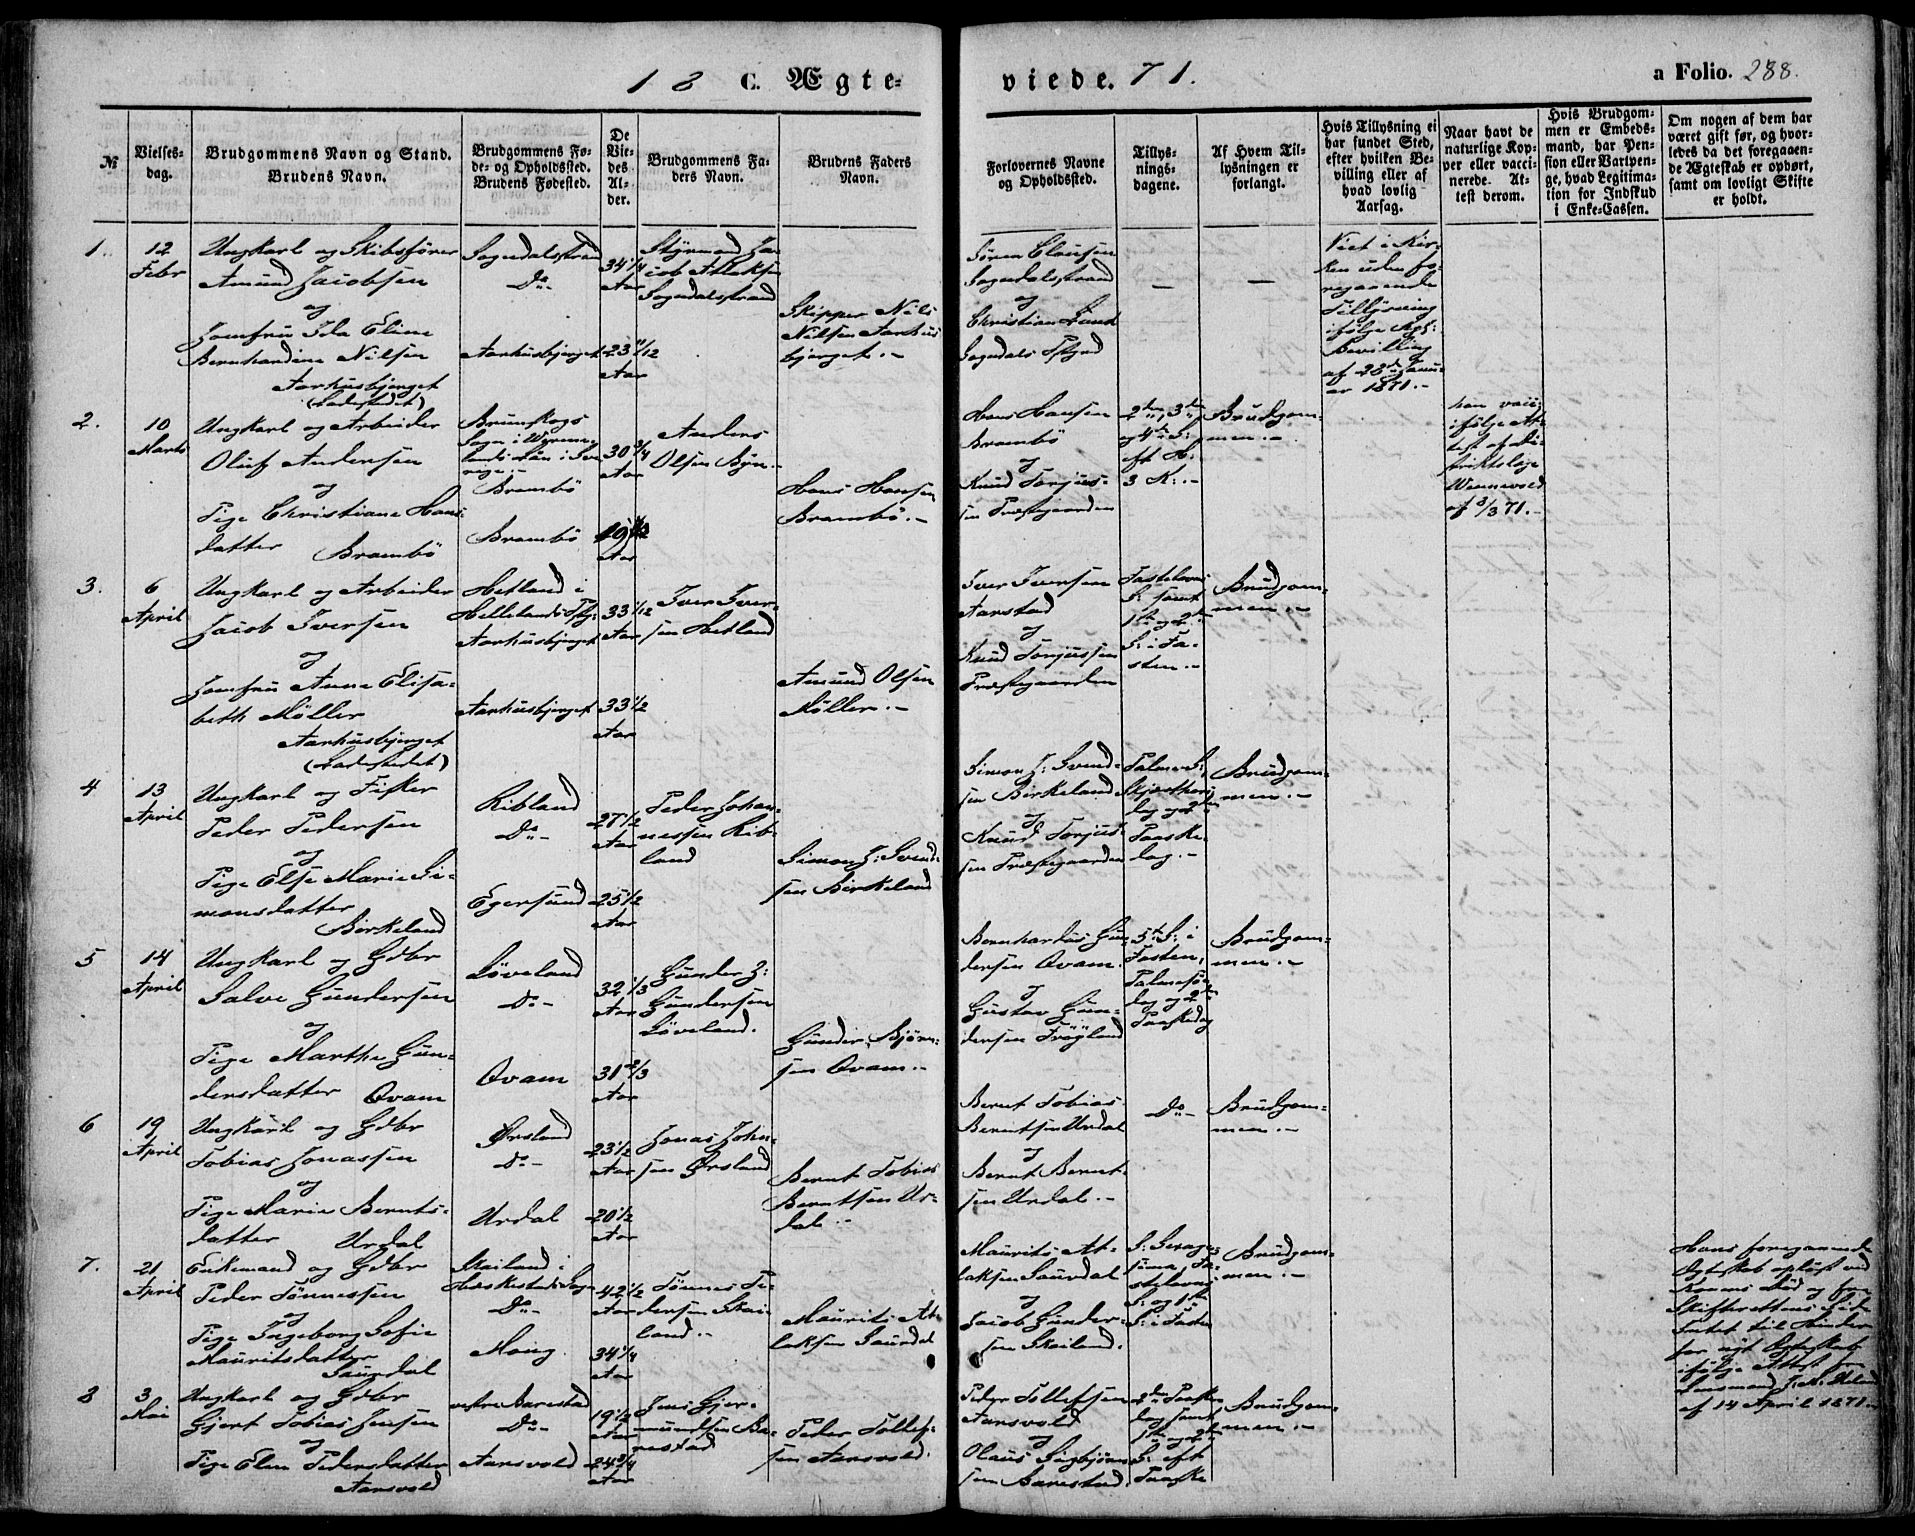 18 C. Ægte=
viede. 71.
a Folio. 288.
№
Vielses-
dag.
Brudgommens Navn og Stand.
Brudens Navn.
Brudgommens Fø-
de- og Opholdssted.
Brudens Fødested.
De
Vie-
des
Al-
der.
Brudgommens Fa-
ders Navn.
Brudens Faders
Navn.
Forlovernes Navne
og Opholdssted.
Tillys-
nings-
dagene.
Af Hvem Til-
lysningen er
forlangt.
Hvis Tillysning ei
har fundet Sted,
efter hvilken Be-
villing eller af
hvad lovlig
Aarsag.
Naar havt de
naturlige Kop-
per eller vacci-
nerede. At-
test derom.
Hvis Brudgom-
men er Embeds-
mand, har Pen-
sion eller Vartpen-
ge, hvad Legitima-
tion for Indskud
i Enke-Cassen.
Om nogen af dem har
været gift før, og hvor-
ledes da det foregaaen-
de Ægteskab er ophørt,
samt om lovligt Skifte
er holdt.
1.
12
Febr
Ungkarl og Skibsfører
Amund Jacobsen
og
Jomfru Ida Eline
Bernhardine Nilsen
Aarhusbjerget
(Ladestedet)
Sogndalsstrand
Do -
Aarhusbjerget
34 1/4
Aar
23 11/12
Aar
Styrmand Ja-
cob Atlaksen
Sogndalstrand
Skipper Nils
Nilsen Aarhus
bjerget. -
Søren Clausen
Sogndalsstrand
og
Christian Lund
Sogndals Psgjd
—
—
Viet i Kir-
ken uden fo-
regaaende
Tillysning
ifølge Kgl:
Bevilling
af 28de Janu-
ar 1871. -
2.
10
Marts
Ungkarl og Arbeider
Oluf Andersen
og
Pige Christiane Hans-
datter Brambö
Brunskogs
Sogn i Werm-
lands Län i Sve-
rige. -
Brambö
Brambö
30 3/4
Aar
19
Aar
Anders
Olsen Byn. -
Hans Hansen
Brambö. -
Hans Hansen
Brambö
og
Knud Torjus-
sen Præstegaarden
2den, 3die
og 4de S:
eft H:
3 K: -
Brudgom-
men. -
han vacc:
ifølge At-
test af Di-
striktslæge
Wennevold
af 3/3 71. -
3.
6
April
Ungkarl og Arbeider
Jacob Iversen
og
Jomfru Anne Elisa-
beth Möller
Aarhusbjerget
(Ladestedet)
Hetland i
Hellelands Psgj:
Aarhusbjerget
Aarhusbjerget
33 1/12
Aar
33 1/2
Aar
Iver Iver-
sen Hetland
Amund Olsen
Möller. -
Iver Iversen
Aarstad
og
Knud Torjussen
Præstegaarden
Fastelavns
S: samt
1ste og 2den
S: i Fa-
sten. -
Brudgom-
men. -
4
13
April
Ungkarl og Fisker
Peder Pedersen
og
Pige Else Marie Si-
monsdatter
Birkeland
Ribland
Do -
Egersund
27 1/2
Aar
25 1/2
Aar
Peder Johan-
nessen Rib-
land
Simon J: Svend-
sen Birkeland
Simon J: Svend-
sen Birkeland
og
Knud Torjus-
sen Præstegaarden
Palme S:,
Skjærthors
dag og 2den
Paaske-
dag. -
Brudgom-
men. -
5
14
April
Ungkarl og Gdbr
Salve Gundersen
og
Pige Marthe Gun-
dersdatter Ovam
Löveland
Do -
Ovam
32 1/3
Aar
31 2/3
Aar
Gunder G:
Gundersen
Löveland.
Gunder Björn-
sen Ovam. -
Bernhardus Gun-
dersen Ovam.
og
Gustav Gun-
dersen Frögland
5te S: i
Fasten,
Palmesøn-
dag og 2den
Paaskedag
Brudgom-
men. -
6
19
April
Ungkarl og Gdbr
Tobias Jonassen
og
Pige Marie Bernts-
datter Urdal
Ørsland
Do -
Urdal
23 1/2
Aar
20 1/2
Aar
Jonas John-
sen Ørsland
Bernt Tobias
Berntsen Ur-
dal -
Bernt Tobias
Berntsen Urdal
og
Bernt Bernt-
sen Urdal. -
Do -
Brudgom-
men. -
7.
21
April
Enkemand og Gdbr
Peder Tönnessen
og
Pige Ingeborg Sofie
Mauritsdatter
Saurdal
Skailand i
Heskestads Sogn
Do -
Mong
42 1/2
Aar
34 1/4
Aar
Tönnes Pe-
dersen Skai-
land. -
Maurits At-
laksen Saurdal
Maurits At-
laksen Saurdal
og
Jacob Gunder-
sen Skailand.
S: Sexage-
sima, Fa-
stelavns
S: og 1ste
S: i Fasten
Brudgom-
men. -
Hans foregaaende
Ægteskab oplöst ved
Konens Död og fra
Skifterettens Side
Intet til Hinder
for nyt Ægteskab
ifölge Attest fra
Lensmand
af 14 April 1871. -
8
3
Mai
Ungkarl og Gdbr
Gjert Tobias Jensen
og
Pige Elen Pedersdatter
Aarsvold
vestre Barestad
Do -
Aarsvold
19 1/2
Aar
24 3/4
Aar
Jens Gjer-
mundsen Ba-
restad
Peder Tollef-
sen Aarsvold.
Peder Tollefsen
Aarsvold
og
Olaus Sigbjørn-
sen Barestad.
2den Paaske-
dag samt
1ste og 2den
S: eft
Paaske
Brudgom-
men. -